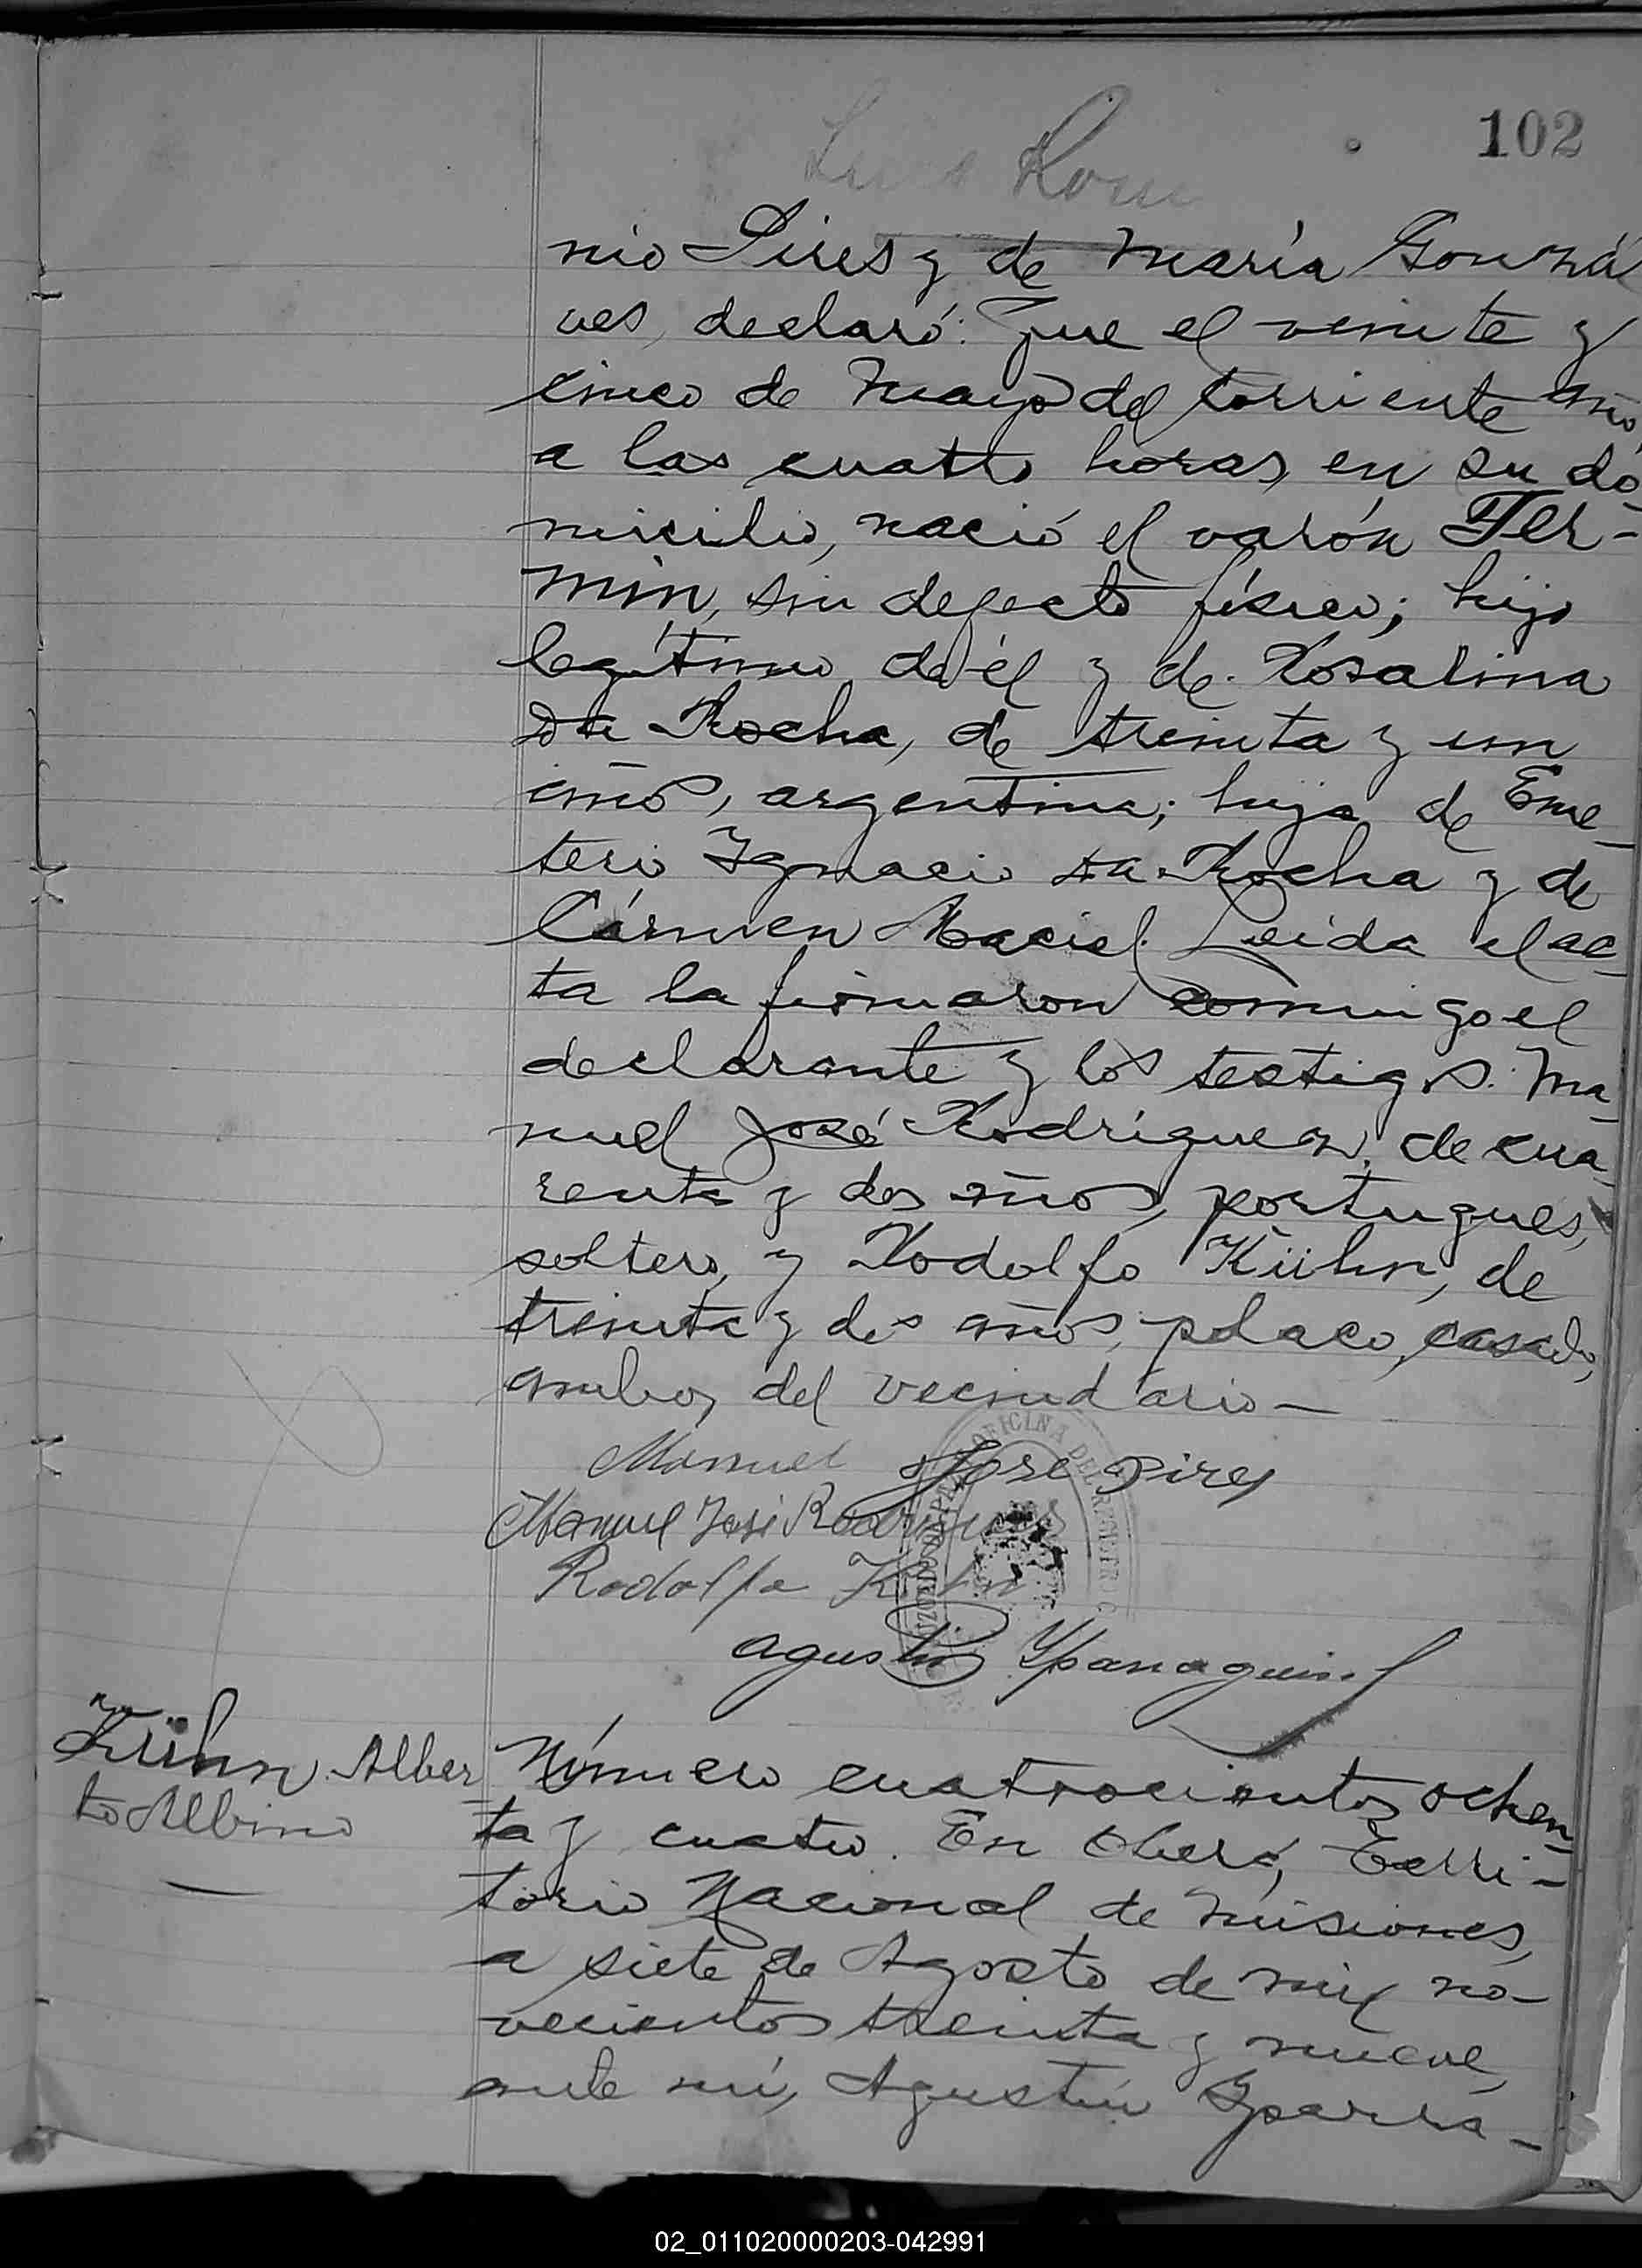 102
nio Pires y de María Gonzá
ves, declaró: Que el veinte y
cinco de Mayo del corriente año,
a las cuatro horas, en su do
micilio, nació el varón Fer-
mín, sin defecto físico; hijo
legítimo de él y de Rosalina
da Rocha, de treinta y un
años, argentina; hija de Eme
terio Ignacio da Rocha y de
Cármen Maciel. Leida el ac
ta la firmaron conmigo el
declarante y los testigos: Ma
nuel José Rodríguez, de cua
renta y dos años, portugues,
soltero, y Rodolfo Kühn, de
treinta y dos años, polaco, casado,
ambos del vecindario—
Manuel José Pires
Manuel José Rodrigues
Rodolfo Kühn
OFICINA DEL REGISTRO C
JUZGADO DE PAZ
Agustín
Kühn Alber
to Albino
Número cuatrocientos ochen
ta y cuatro. En Oberá, Terri-
torio Nacional de Misiones,
a siete de Agosto de mil no-
vecientos treinta y nueve,
ante mí, Agustín Yparra-
02_011020000203-042991